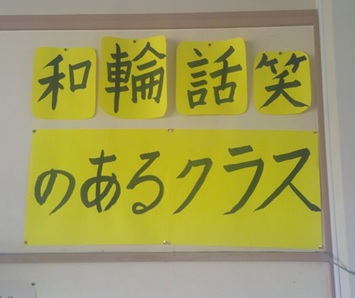 和輪話笑
のあるクラス